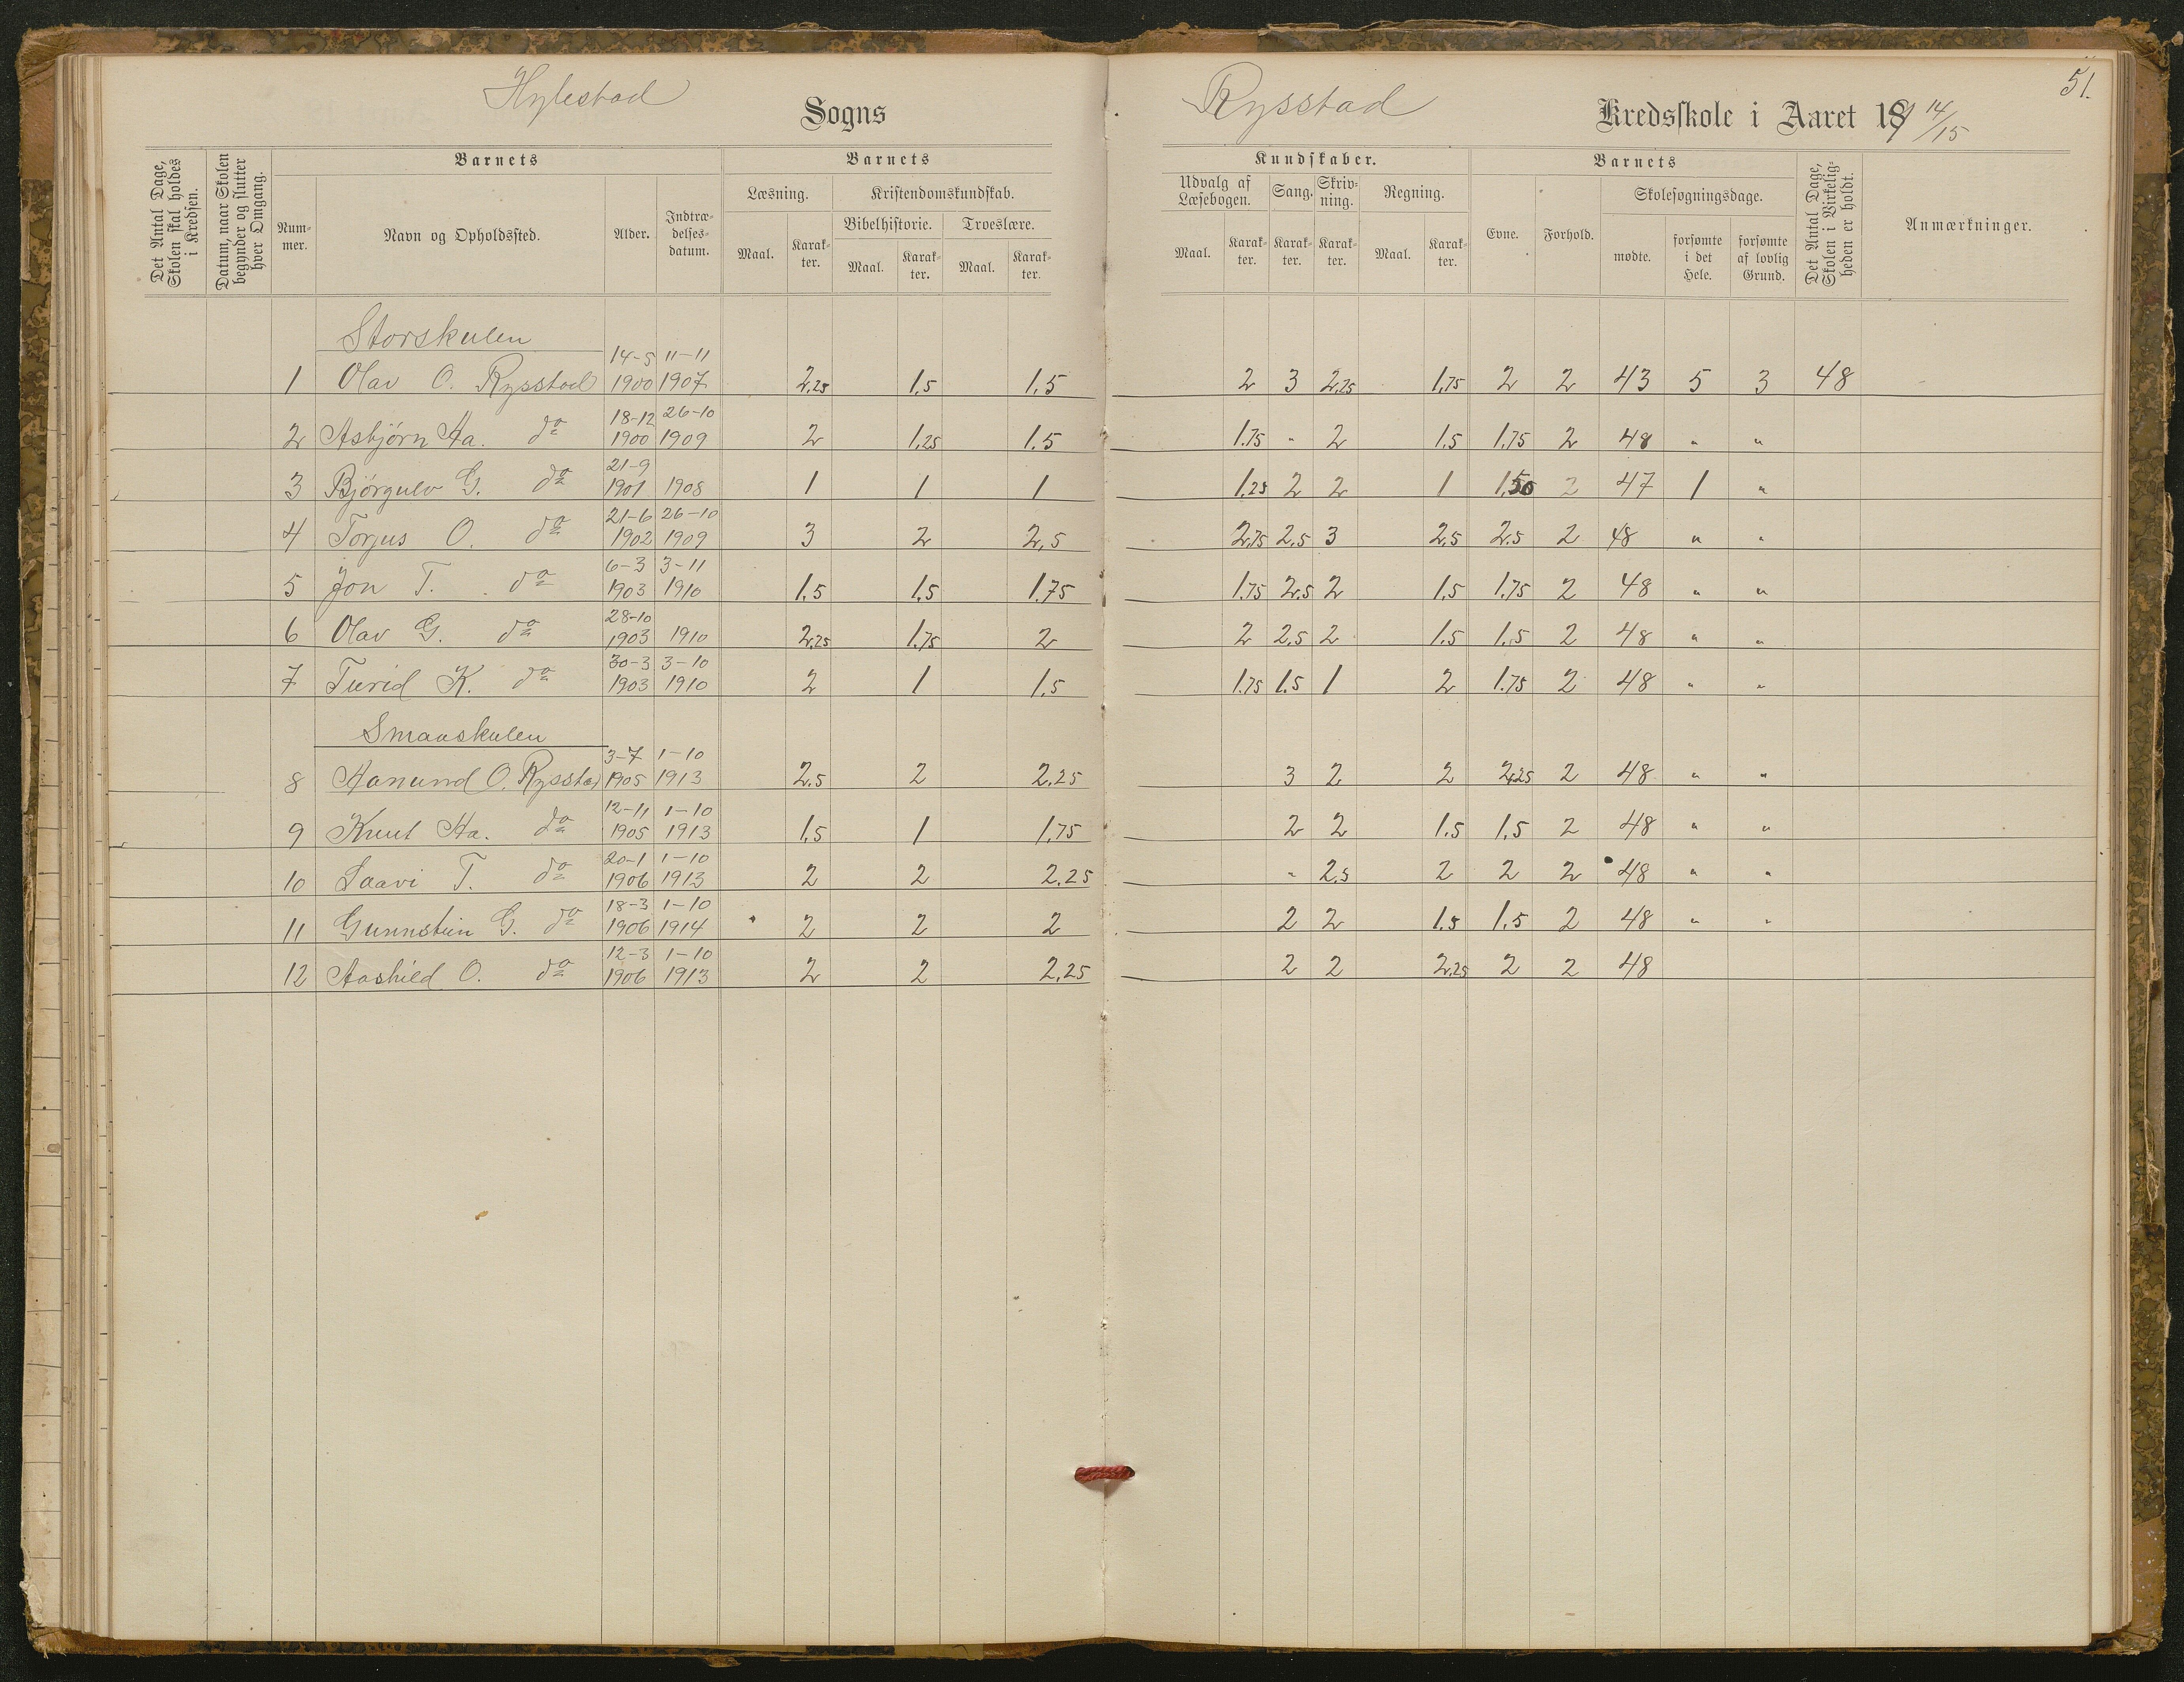 Hylestad Sogns
Rysstad Kredsskole i Aaret 19 14/15
51.
Det Antal Dage, Skolen skal holdes i Kredsen.
Datum, naar Skolen begynder og slutter hver Omgang.
Barnets
Nummer.
Navn og Opholdssted.
Alder.
Indtrædelsesdatum.
Barnets
Læsning.
Maal.
Karakter.
Kristendomskundskab.
Bibelhistorie.
Maal.
Karakter.
Troeslære.
Maal.
Karakter.
Kundskaber.
Udvalg af Læsebogen.
Maal.
Karakter.
Sang.
Karakter.
Skrivning.
Karakter.
Regning.
Maal.
Karakter.
Barnets
Evne.
Forhold.
Skolesøgningsdage.
mødte.
forsømte i det Hele.
forsømte af lovlig Grund.
Det Antal Dage, Skolen i Virkeligheden er holdt.
Anmærkninger.
Storskulen
1 Olav O. Rysstad 14-5 1900 11-11 1907 2,25 1,5 1,5 2 3 2,25 1,75 2 2 43 5 3 48
2 Asbjörn Aa. do 18-12 1900 26-10 1909 2 1,25 1.5 1.75 " 2 1.5 1.75 2 48 " "
3 Björgulv G. do 21-9 1901 1908 1 1 1 1.25 2 2 1 1,50 2 47 1 "
4 Torjus O. do 21-6 1902 26-10 1909 3 2 2,5 2,75 2.5 3 2,5 2.5 2 48 " "
5 Jon T. do 6-3 1903 3-11 1910 1.5 1.5 1.75 1.75 2.5 2 1.5 1.75 2 48 " "
6 Olav G. do 28-10 1903 1910 2,25 1.75 2 2 2.5 2 1.5 1.5 2 48 " "
7 Turid K. do 30-3 1903 3-10 1910 2 1 1.5 1.75 1.5 1 2 1.75 2 48 " "
Smaaskulen
8 Aanund O. Rysstad 3-7 1905 1-10 1913 2.5 2 2.25 3 2 2 2,25 2 48 " "
9 Knut Aa. do 12-11 1905 1-10 1913 1.5 1 1,75 2 2 1.5 1.5 2 48 " "
10 Laavi T. do 20-1 1906 1-10 1913 2 2 2.25 " 2.5 2 2 2 48 " "
11 Gunnstein G. do 18-3 1906 1-10 1914 2 2 2 2 2 1.5 1.5 2 48 " "
12 Aashild O. do 12-3 1906 1-10 1913 2 2 2,25 2 2 2,25 2 2 48